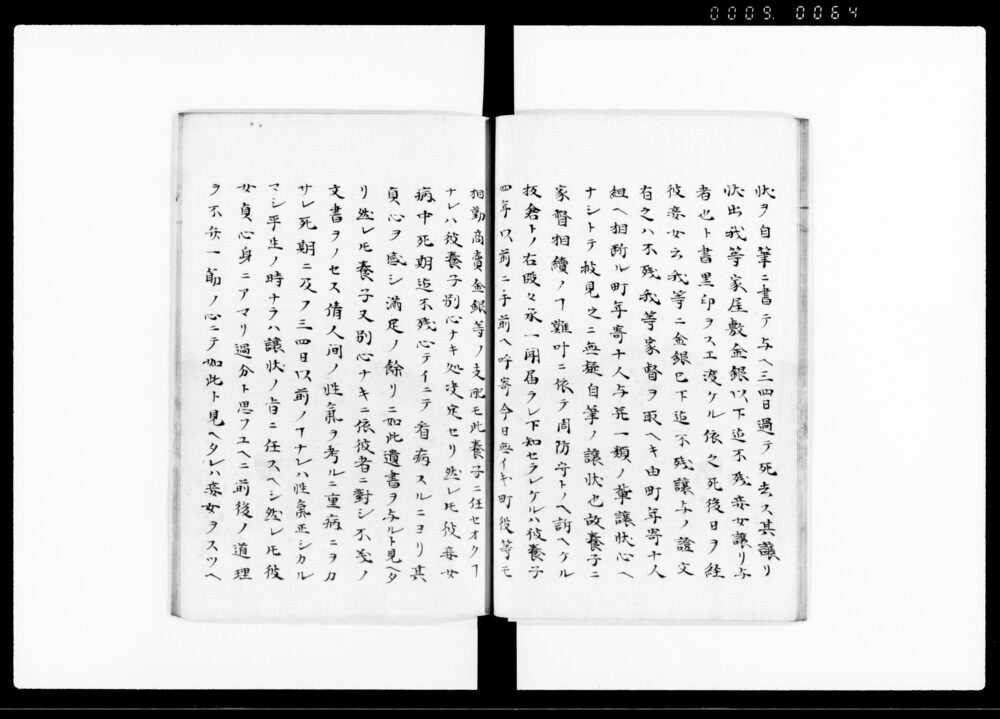 0009. 0064
状ヲ自筆ニ書テ与ヘ三四日過テ死去ス其譲リ
状出我等家屋敷金銀以下迄不残妾女譲リ与
者也ト書黒印ヲスエ渡ケル依之死後日ヲ経
彼妾女云我等ニ金銀已下迄不残譲与ノ證文
有之ハ不残我等家督ヲ取ヘキ由町年寄十人
組ヘ相断ル町年寄十人与共一類ノ輩譲状心ヘ
ナシトテ披見之ニ無疑自筆ノ譲状也故養子ニ
家督相續ノヿ難叶ニ依テ周防守トノヘ訴ヘケル
板倉トノ右段々承一聞届ラレ下知セラレケルハ彼養子
四年以前ニ手前ヘ呼寄今日無イキ町役等モ
相勤商賣金銀等ノ支配モ此養子ニ任セオクヿ
ナレハ彼養子別心ナキ処決定セリ然レ𪜈彼妾女
病中死期迄不残心テイニテ看病スルニヨリ其
貞心ヲ感シ満足ノ餘リニ如此遺書ヲ与ルト見ヘタ
リ然レ𪜈養子又別心ナキニ依彼者ニ對シ不義ノ
文書ヲノセス情人間ノ性氣ヲ考ルニ重病ニヲカ
サレ死期ニ及フ三四日以前ノヿナレハ性氣正シカル
マシ平生ノ時ナラハ譲状ノ旨ニ任スヘシ然レ𪜈彼
女貞心身ニアマリ過分ト思フユヘニ前後ノ道理
ヲ不弁一筋ノ心ニテ如此ト見ヘタレハ妾女ヲスツヘ